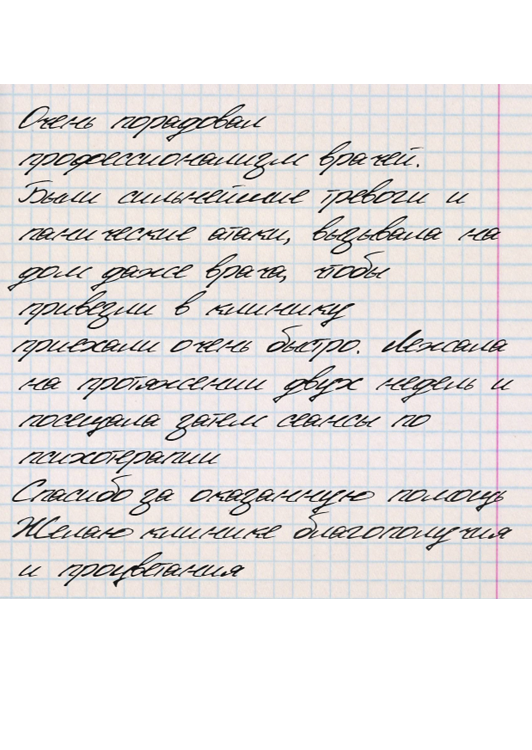 Очень порадовал
профессионализм врачей.
Были сильнейшие тревоги и
панические атаки, вызывала на
дом даже врача, чтобы
привезли в клинику
приехали очень быстро. Лежала
на протяжении двух недель и
посещала затем сеансы по
психотерапии
Спасибо за оказанную помощь
Желаю клинике благополучия
и процветания